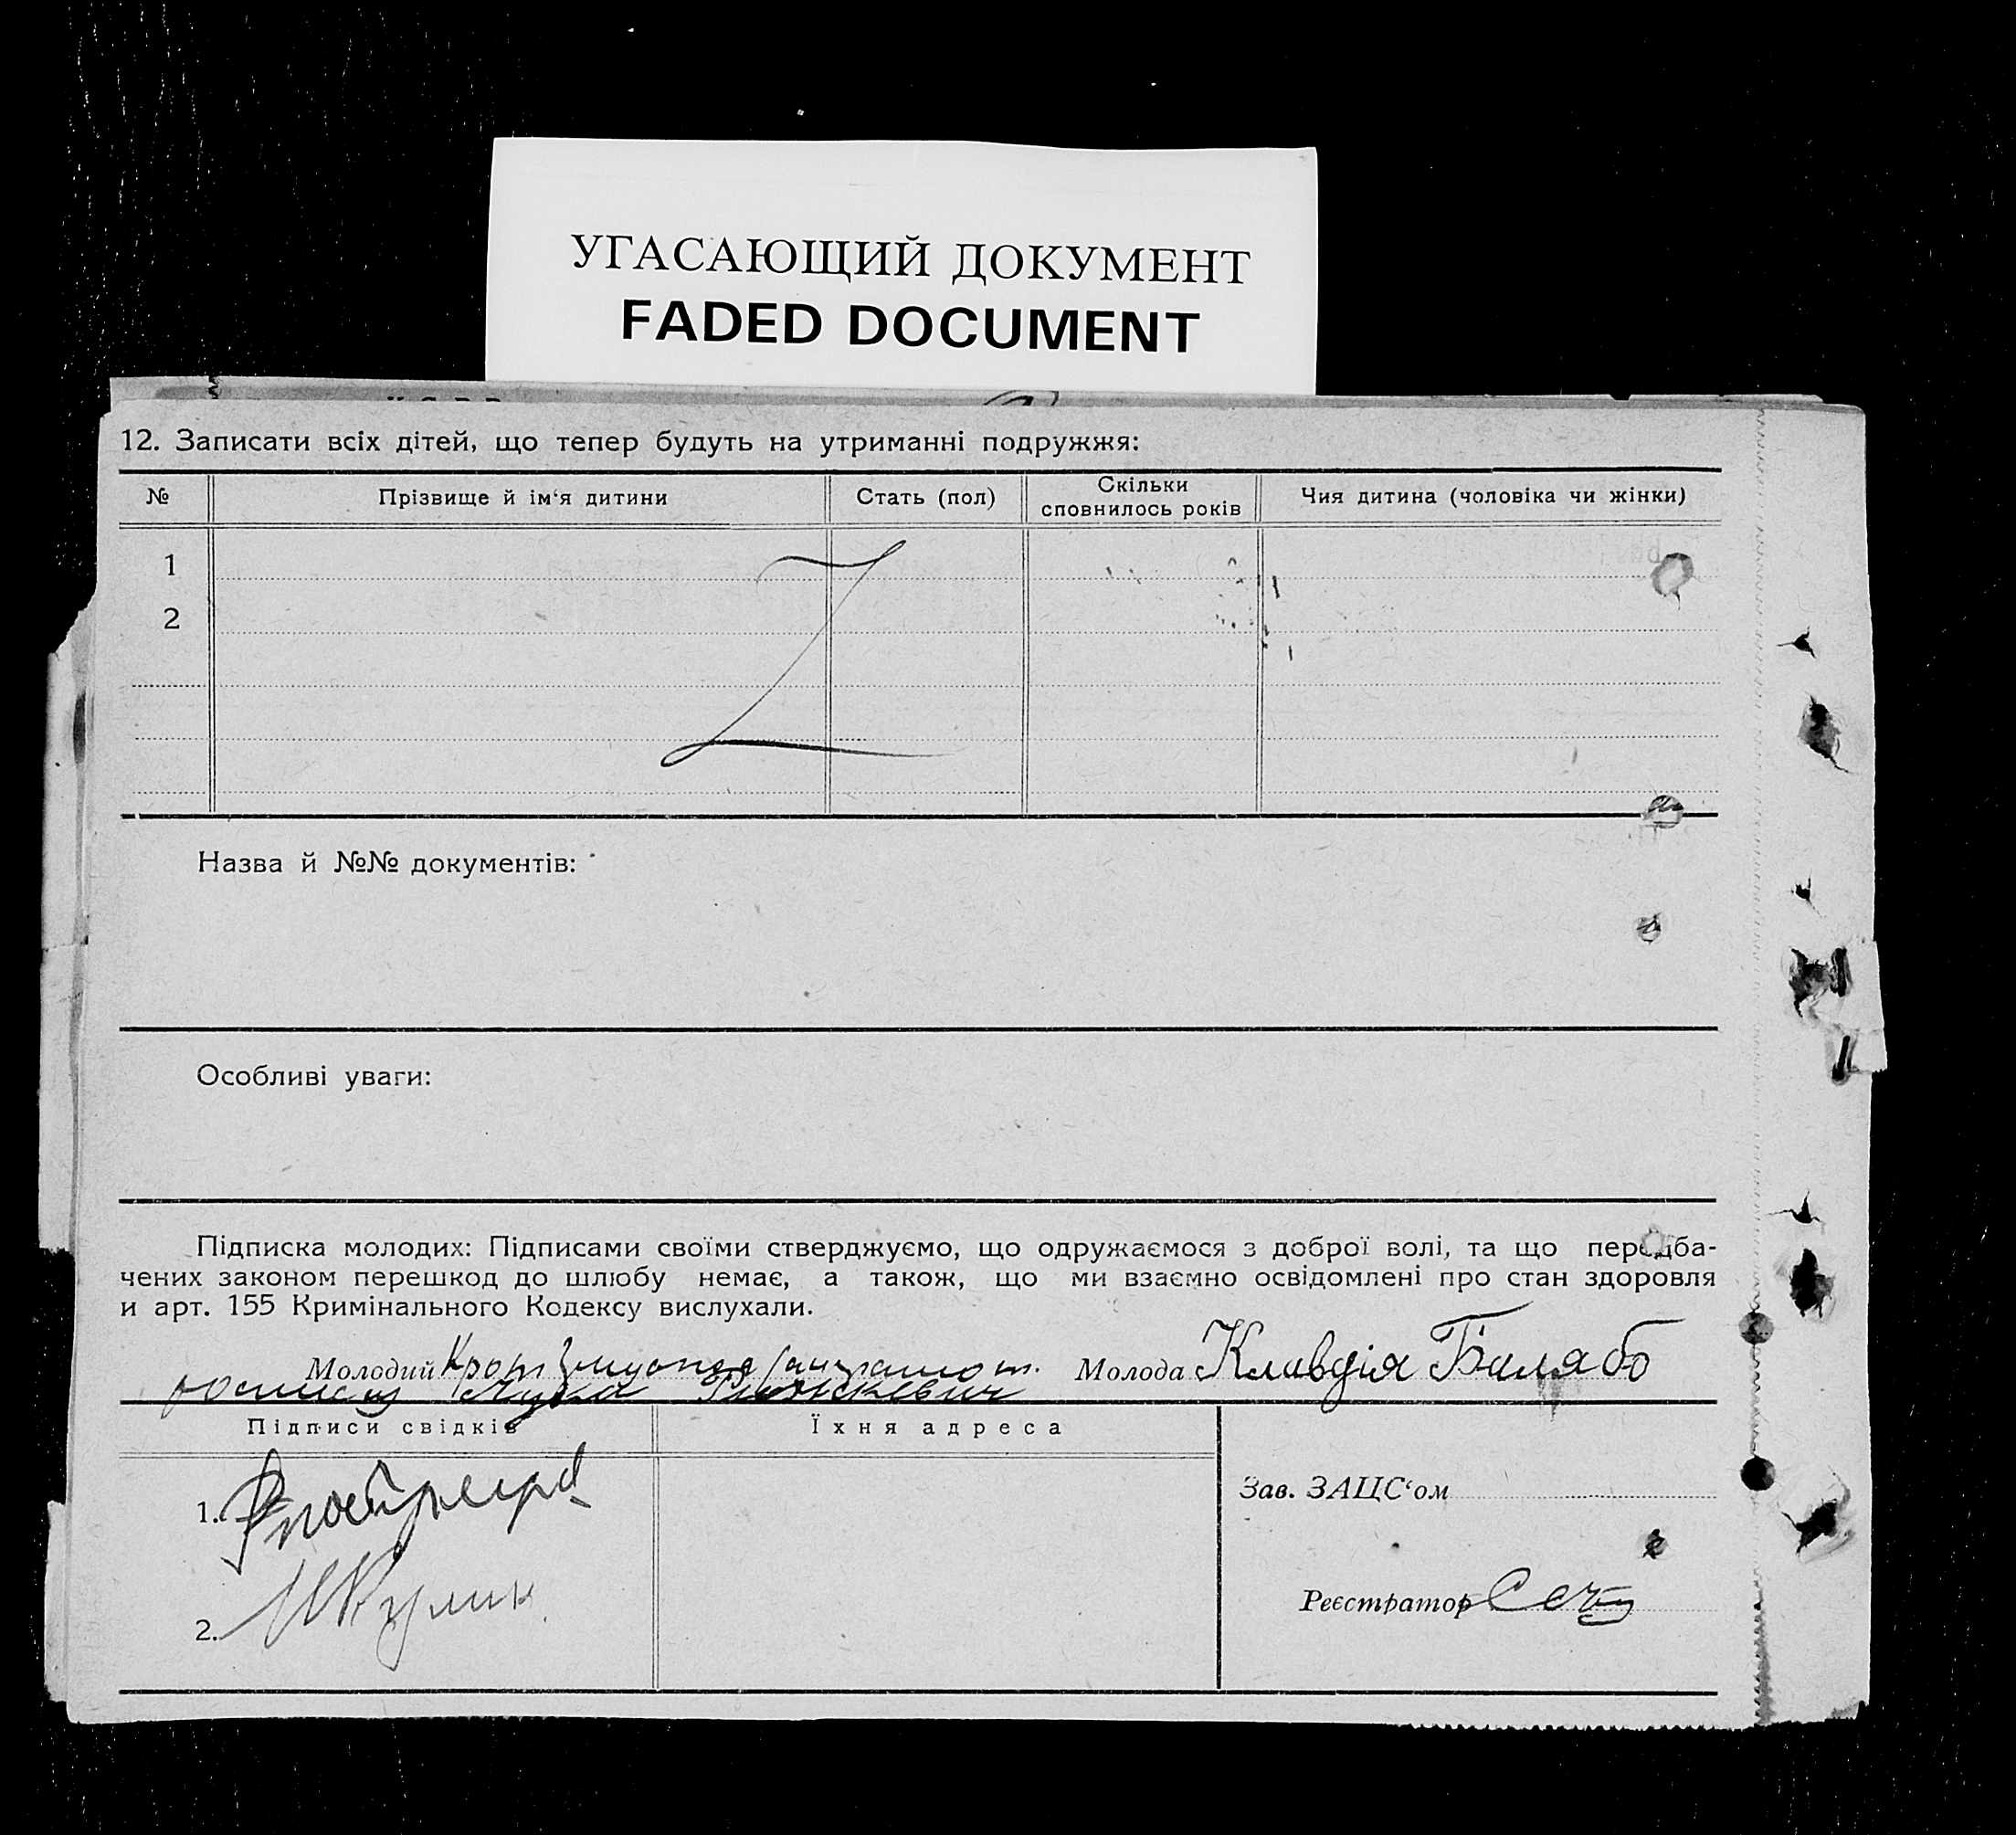 УГАСАЮЩИЙ ДОКУМЕНТ
FADED DOCUMENT
12. Записати всіх дітей, що тепер будуть на утриманні подружжя:
№ Прізвище й ім‘я дитини Стать (пол) Скільки сповнилось років Чия дитина (чоловіка чи жінки)
1
2
Назва й №№ документів:
Особливі уваги:
Підписка молодих: Підписами своїми стверджуємо, що одружаємося з доброї волі, та що передба-
чених законом перешкод до шлюбу немає, а також, що ми взаємно освідомлені про стан здоровля
и арт. 155 Кримінального Кодексу вислухали.
Молодий Крот Молода Клавдія Балябо
Підписи свідків Їхня адреса
Зав. ЗАЦС‘ом
1.
Реєстратор
2. Кулик